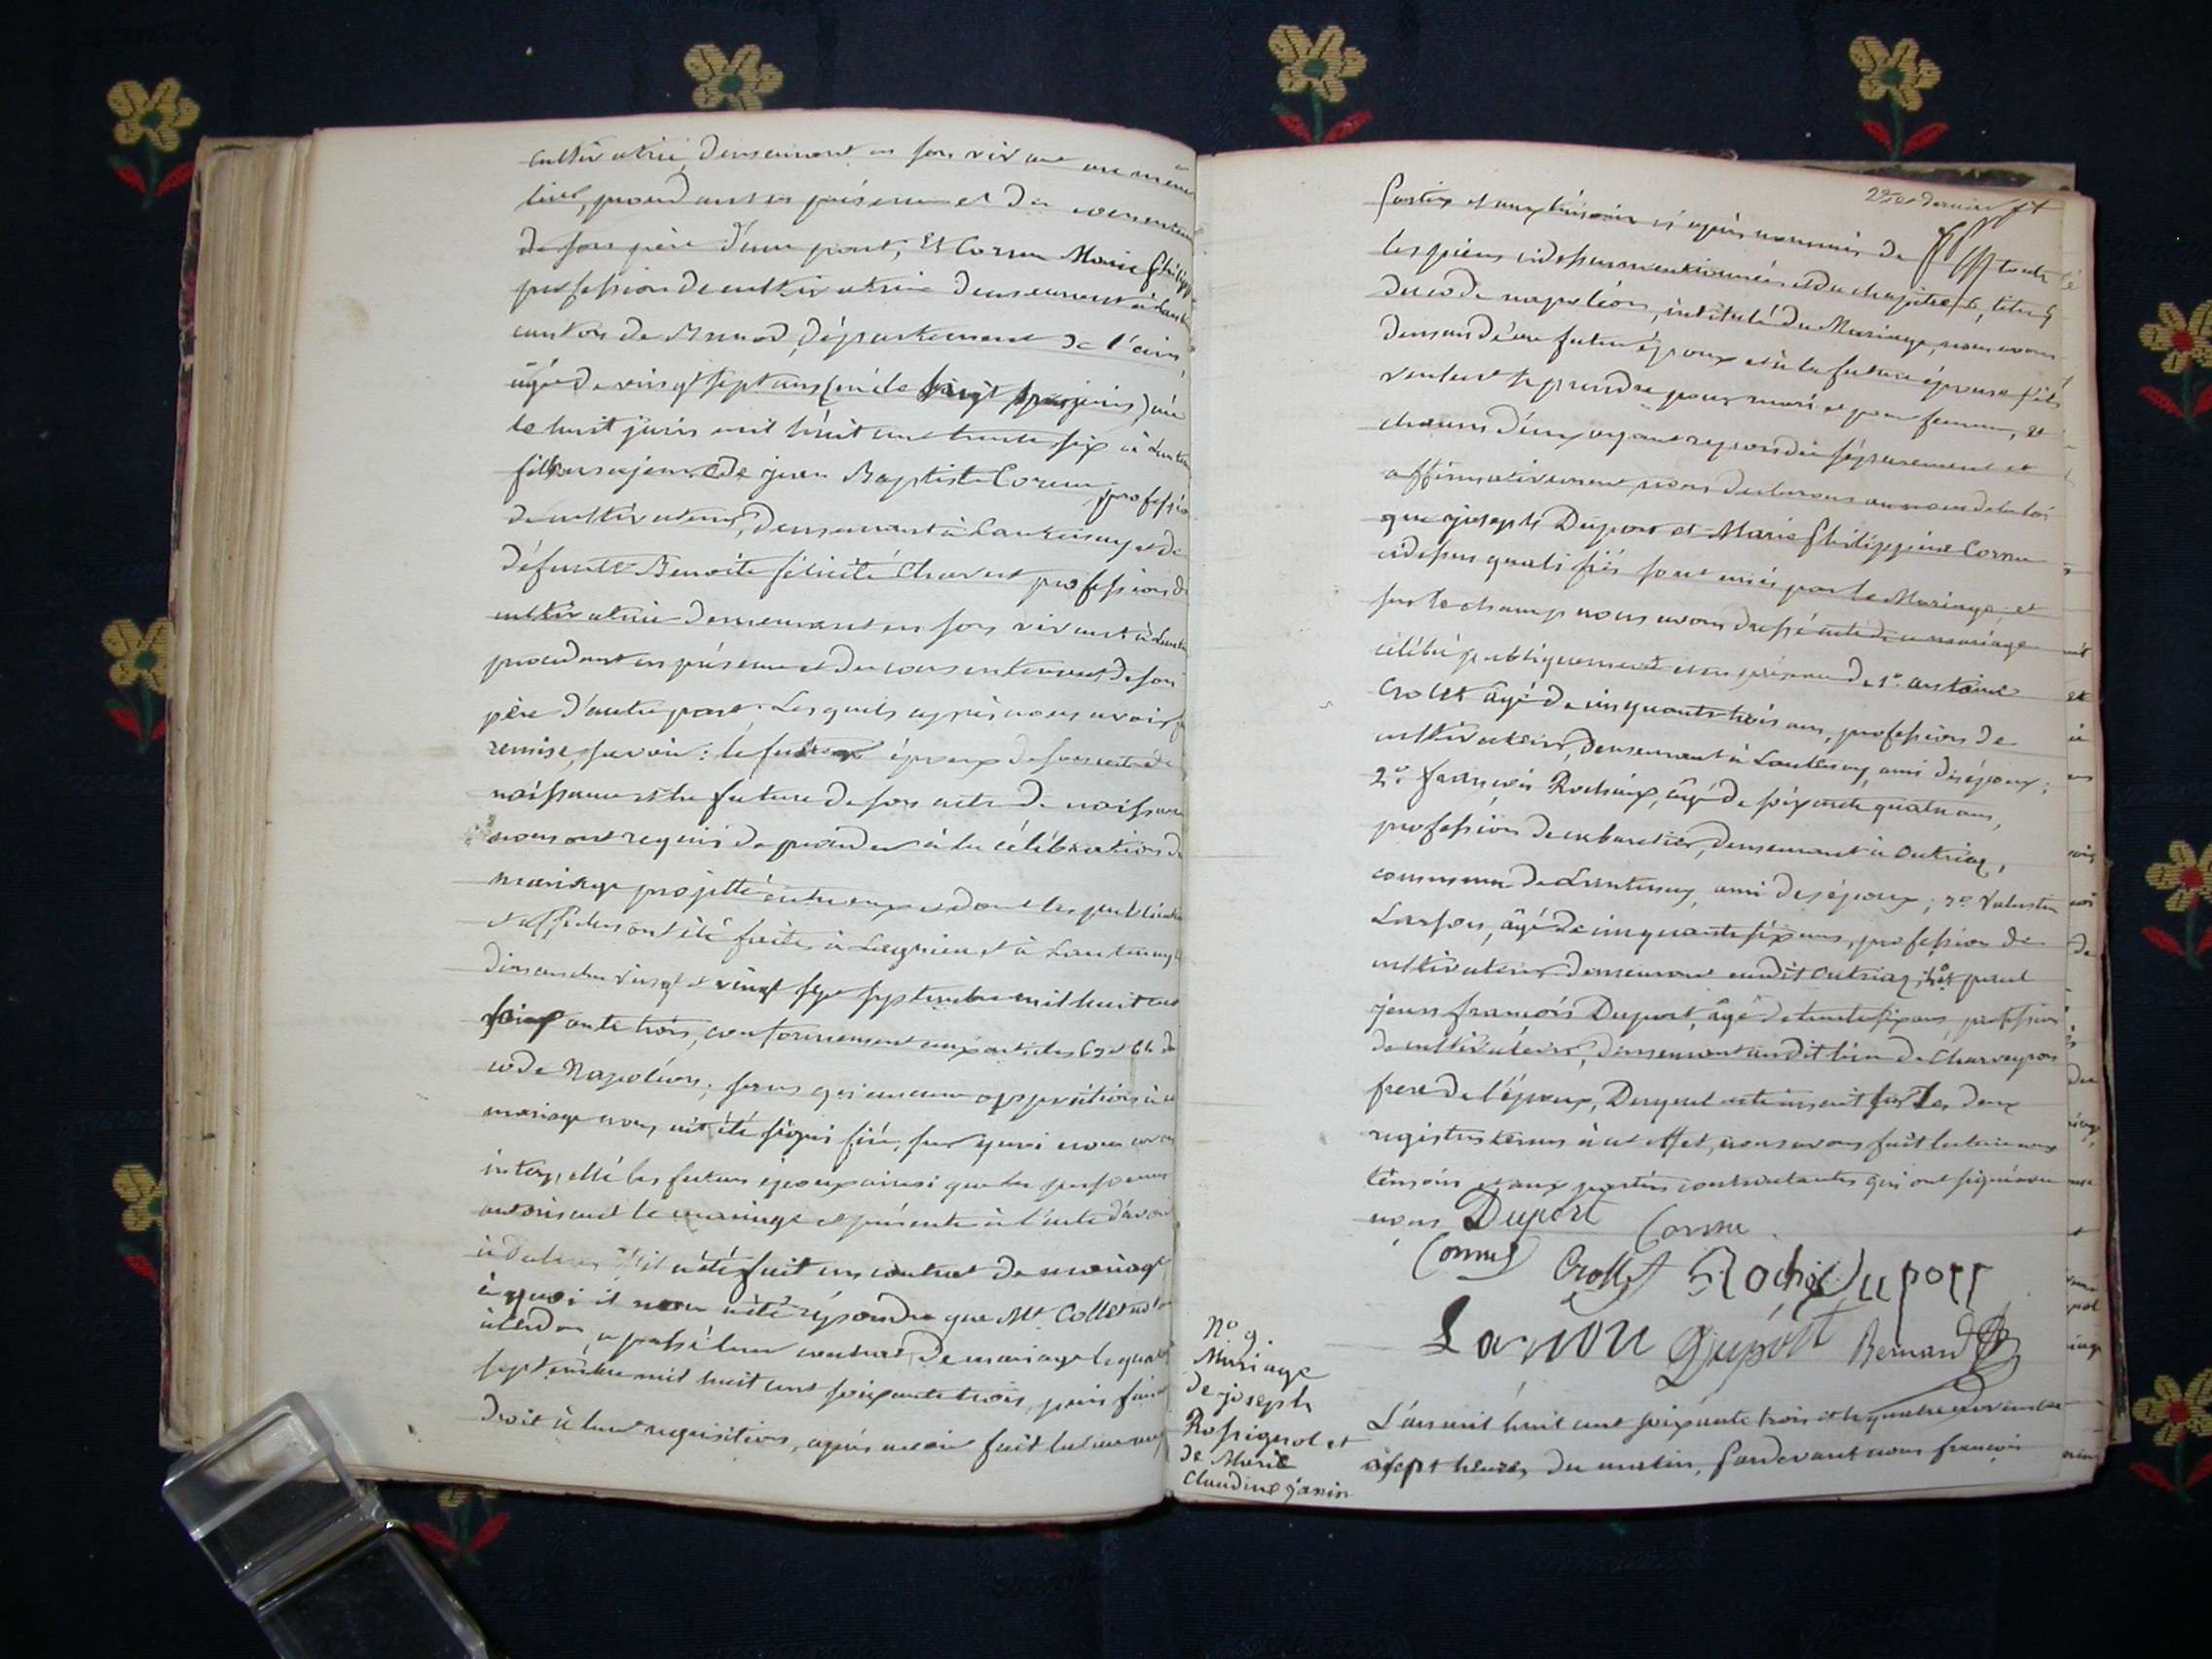 cultivatrice demeurant en son vivant au même
lieu, procédant en présence et du consentement
de son père d'une part; Et Cornu Marie Philippine
profession de cultivatrice demeurant à Lant
canton de Brenod, département de l'ain,
âgée de vingt sept ans (née le juin) née
le huit juin mil huit cent trente six à Lanten
fille majeure de jean Baptiste Cornu, profession
de cultivateur, demeurant à Lantenay et de
défunte Benoite félicité Chavent profession de
cultivatrice demeurant en son vivant à Lanten
procédant en présence et du consentement de son
père d'autre part. Lesquels après nous avoir fait
remise, savoir: le futur époux de son acte de
naissance et la future de son acte de naissance
nous ont requis de procéder à la célébration du
mariage projetté entr'eux et dont les publications
et affiches ont été faites à Lagnieu et à Lantenay les
dimanches vingt et vingt sept septembre mil huit cent
soixante trois, conformément aux articles 63 et 64 du
code Napoléon; sans qu'aucune opposition à ce
mariage nous ait été signifiée, sur quoi nous avons
interpellé les futurs époux ainsi que les personnes
autorisant le mariage et présentes à l'acte d'avoir
à déclarer s'il a été fait un contrat de mariage
à quoi il nous a été répondu que Mt. Collet notaire
à a passé leur contrat de mariage le quatre
septembre mil huit cent soixante trois, puis faisant
droit à leur requisition, après avoir fait lecture aux
22e et dernier ft
parties et aux témoins ci après nommés de toutes
les pièces cidessus mentionnées et du chapitre 6, titre 5
du code napoléon, intitulé du Mariage, nous avons
demandé au futur époux et à la future épouse s'ils
veulent se prendre pour mari et pour femme, et
chacun d'eux ayant répondu séparement et
affirmativement nous déclarons au nom de la loi
que joseph Duport et Marie Philippine Cornu
cidessus qualifiés sont unis par le Mariage; et
sur le champ nous avons dressé acte de ce mariage
célébré publiquement en présence de 1o. antoine
Crollet âgé de cinquante trois ans, profession de
cultivateur, demeurant à Lantenay ami des époux;
2o. françois Rochaix, âgé de soixante quatre ans,
profession de cabaretier, demeurant à Outriaz,
commune de Lantenay, ami des époux; 3o Valentin
Larson, âgé de cinquante six ans, profession de
cultivateur demeurant audit Outriaz;
jean françois Duport, âgé de trente six ans, profession
de cultivateur, demeurant audit lieu de Charveyron
frere de l'époux, Duquel acte inscrit sur les deux
registres tenus à cet effet, nous avons fait lecture aux
témoins et aux parties contractantes qui ont signé avec
nous Duport Cornu
Cornu Crollet Rochaix Duport
Larson Duport Bernard
No 9.
Mariage
de joseph
Rossignol et
de Marie
Claudine Janin
L'an mil huit cent soixante trois et le quatre novembre
à sept heures du matin, Pardevant nous françois